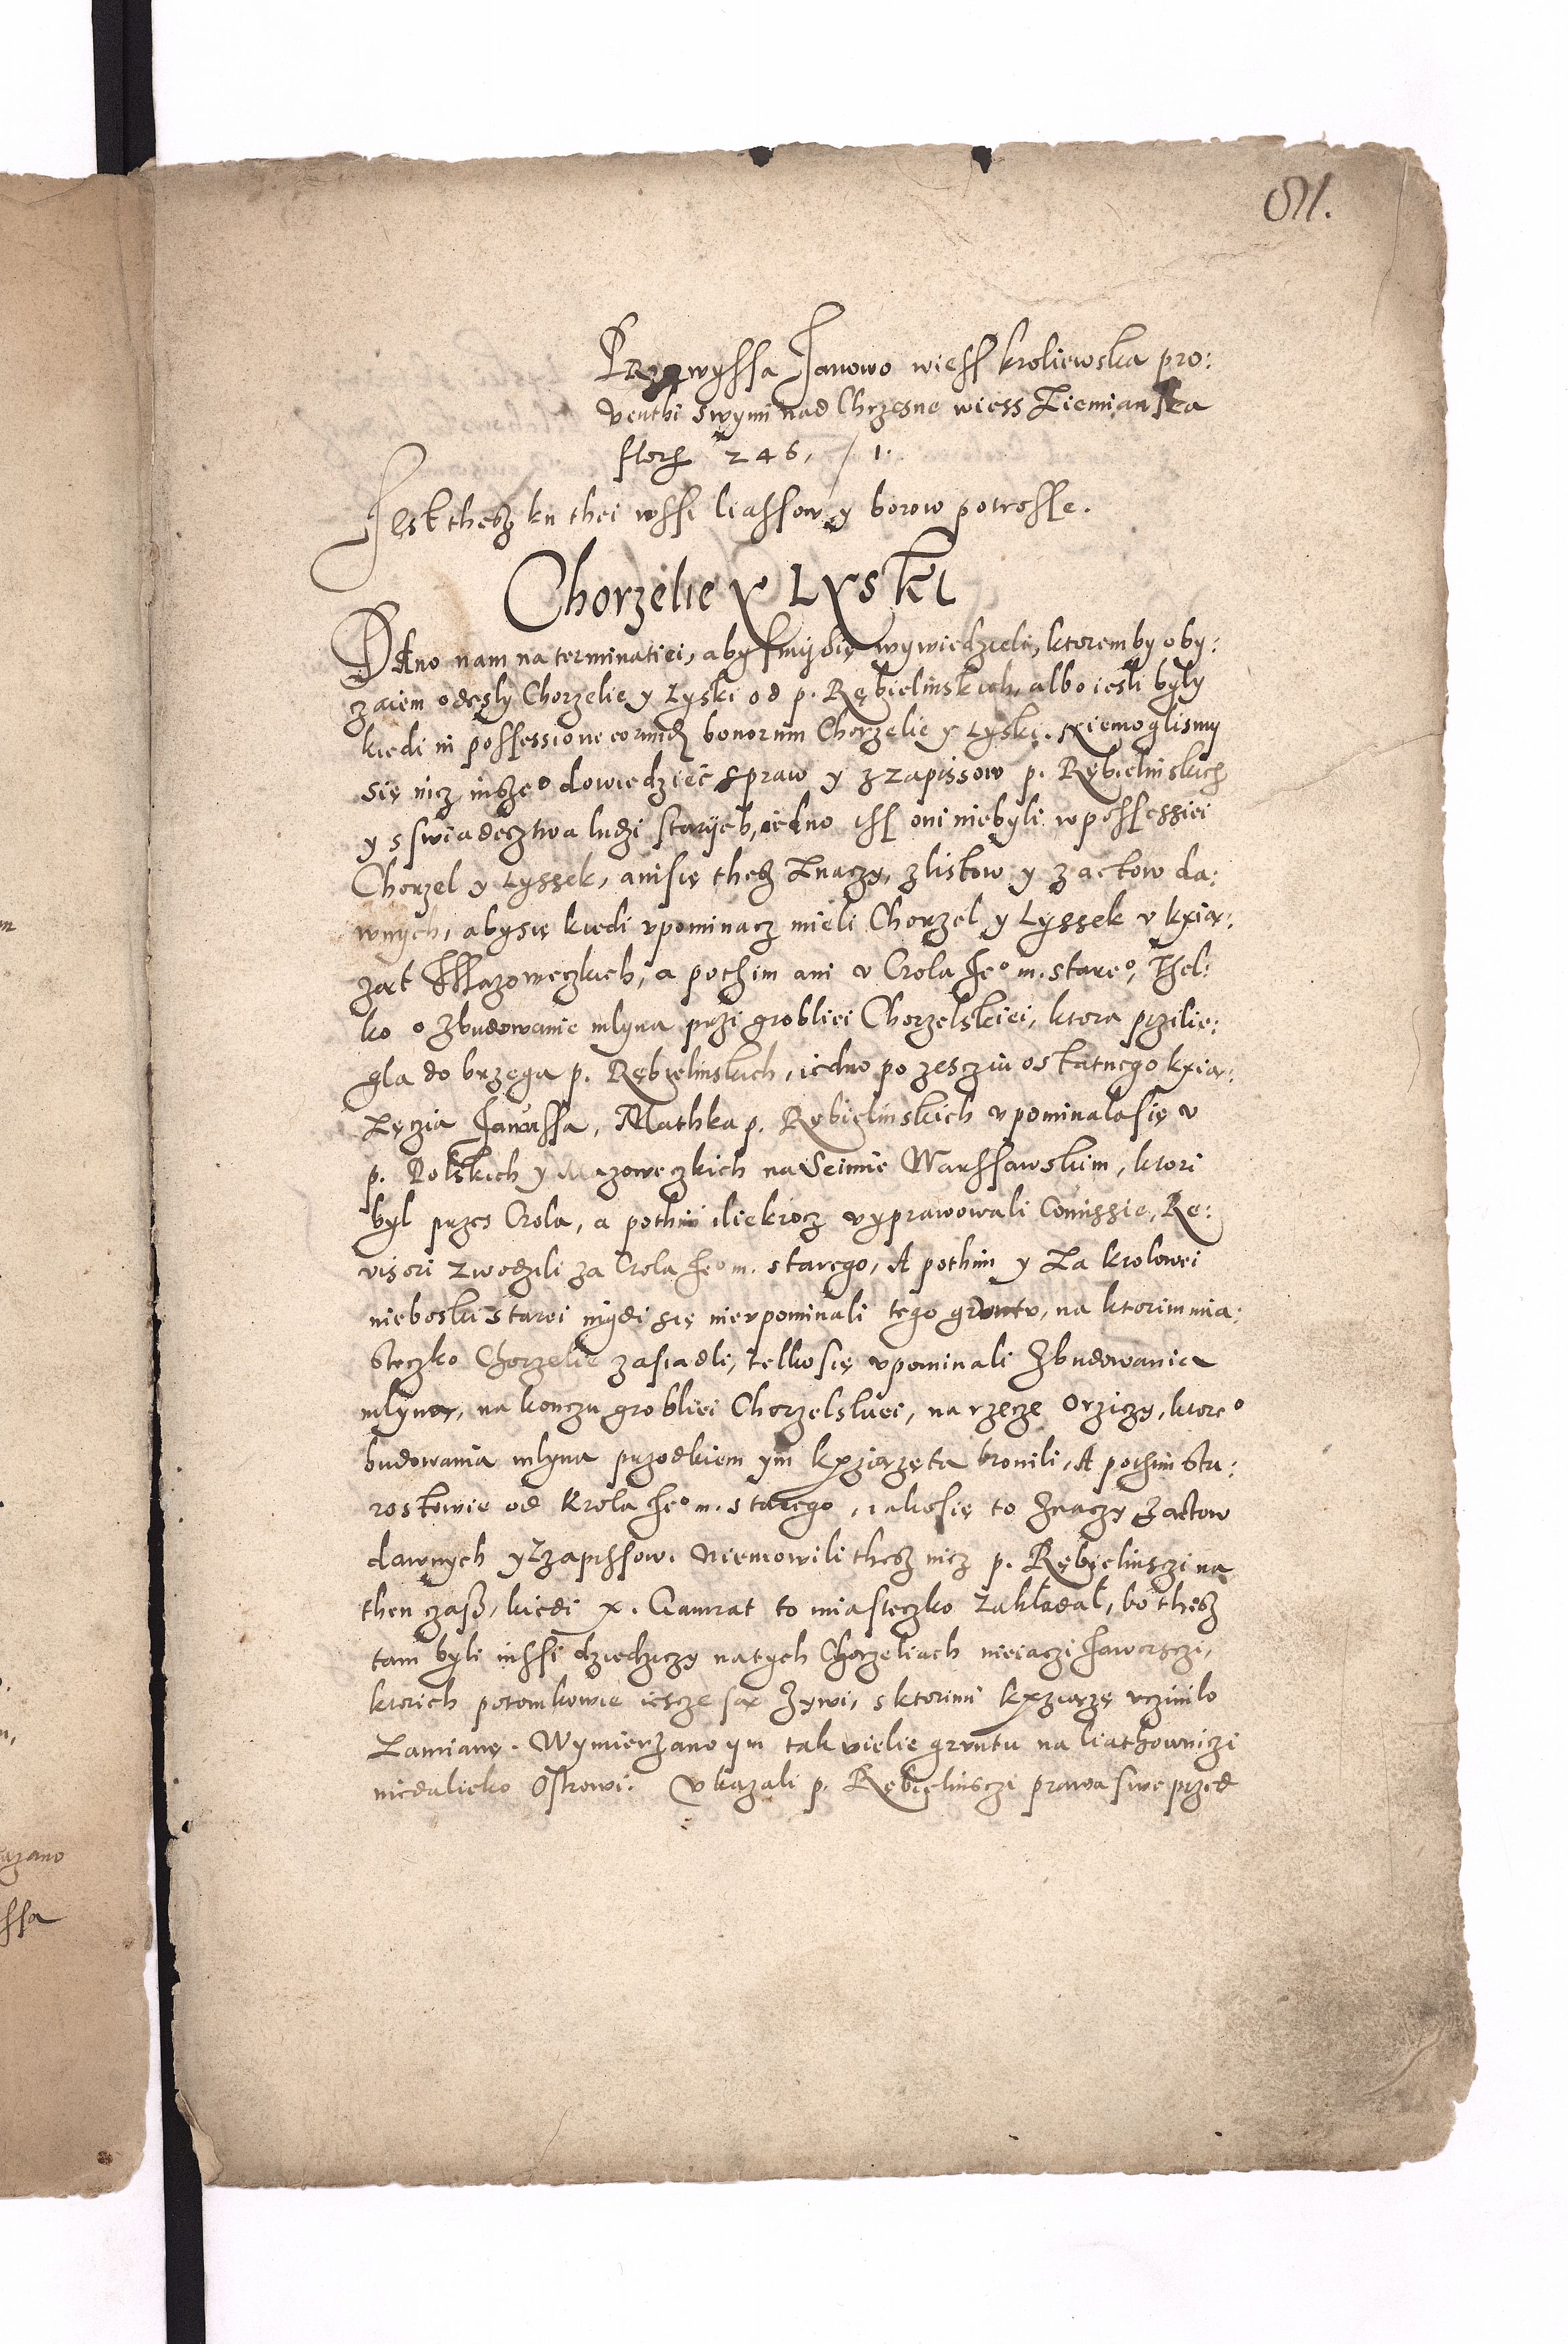 81.
Przewyssa Janowo wiess kroliewska pro:
venthi swymi nad Chrzesne wiess Ziemianska
flor 246, / 1.
Jest thesz ku thei wssi liassow y borow potrosse.
Chorzelie y Lyski
DAno nam na terminatiei, aby smÿ się wywiedzieli, ktorem by oby:
czaiem odesly Chorzelie y Lyski od p. Rębielinskich, albo iesli były
kiedi in possessione eorund bonorum Chorzelie y Lyski. Niemoglismy
się nicz insze° dowiedzieć spraw y z zapissow p. Rębielinskich
y s swiadecztwa ludzi starÿch, iedno iss oni niebyli w possessiei
Chorzel y Lyssek, ani się thesz Znaczy, z listow y z actow da:
wnych, aby się kiedi upominacz mieli Chorzel y Lyssek v kxiaͅ:
zat Mazoweczkich, a pothim ani v Crola Je° m. stare°, Thel:
ko o zbudowanie mlyna przi grobliei Chorzelskiei, ktora przilie:
gla do brzega p. Rębielinskich, iedno po zescziu ostatnego kxiaͅ:
Zęczia Janussa, Mathka p. Rębielinskich vpominala się v
p. Polskich y Mazoweczkich na Seimie Warssawskim, ktori
byl przes Crola, a pothim iliekrocz vyprawowali Comissie, Re:
visori zwodzili za Crola Je° m. starego, A pothim y Za krolowei
nieboski starei nigdi się nie vpominali tego gruntv, na ktorim mia:
steczko Chorzelie zasiadli, telko się vpominali Zbudowania
mlyna, na konczu grobliei Chorzelskiei, na rzecze Orziczy, ktore°
budowania mlyna przodkiem ym kxziaͅzęta bronili, A pothim Sta:
rostowie od Krola Je° m. starego, iako się to Znaczy Z actow
dawnych y Z zapissow. Niemowili thesz nicz p. Rębielinsczi na
then czasz, kiedi x. Gamrat to miasteczko Zakladal, bo thesz
tam byli inssi dziedziczy na tych Chorzeliach nieiaczi Jaworsczi,
ktorich potomkowie iescze saͅ Zywi, s ktorimi kxziaͅzę vczinilo
Zamianę. Wymierzano ym tak vielie gruntu na liathowniczi
niedalieko Ostrowi. Vkazali p. Rębielinsczi prawa swe przed